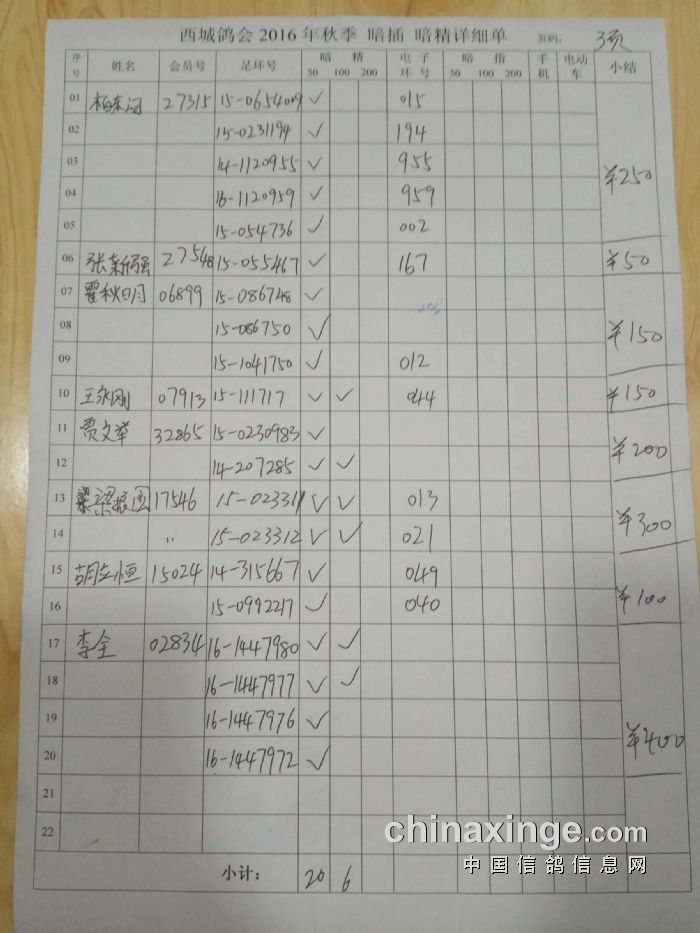 西城鸽会 2016 年秋季 暗插 暗精详细单 页码: 3页
序号 姓名 会员号 足环号 暗 精 50 100 200 电子环号 暗 指 50 100 200 手机 电动车 小结
01 27315 15-0654009 ✓ 015
02 15-0231194 ✓ 194
03 14-1120955 ✓ 955
04 16-1120959 ✓ 959 ¥250
05 15-054736 ✓ 002
06 张新强 27548 15-055467 ✓ 167 ¥50
07 翟秋明 06899 15-086748 ✓
08 15-086750 ✓ ¥150
09 15-1041750 ✓ 012
10 王永刚 07913 15-111717 ✓ ✓ 044 ¥150
11 贾文举 32865 15-0230983 ✓
12 14-207285 ✓ ✓ ¥200
13 梁振国 17546 15-023311 ✓ ✓ 013
14 " 15-023312 ✓ ✓ 021 ¥300
15 胡立恒 15024 14-315667 ✓ 049
16 15-0992217 ✓ 040 ¥100
17 李全 02834 16-1447980 ✓ ✓
18 16-1447977 ✓ ✓
19 16-1447976 ✓
20 16-1447972 ✓ ¥400
21
22
小计: 20 6
chinaxinge.com
中国信鸽信息网